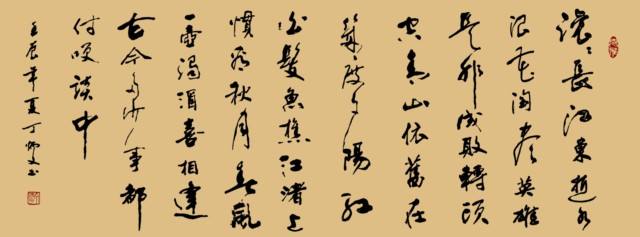 滚滚長江東逝水
浪花淘尽英雄
是非成敗轉頭
空青山依舊在
幾度夕陽紅
白髮魚樵江渚上
慣看秋月春風
一壺濁酒喜相逢
古今多少事都
付咲談中
壬辰年夏丁